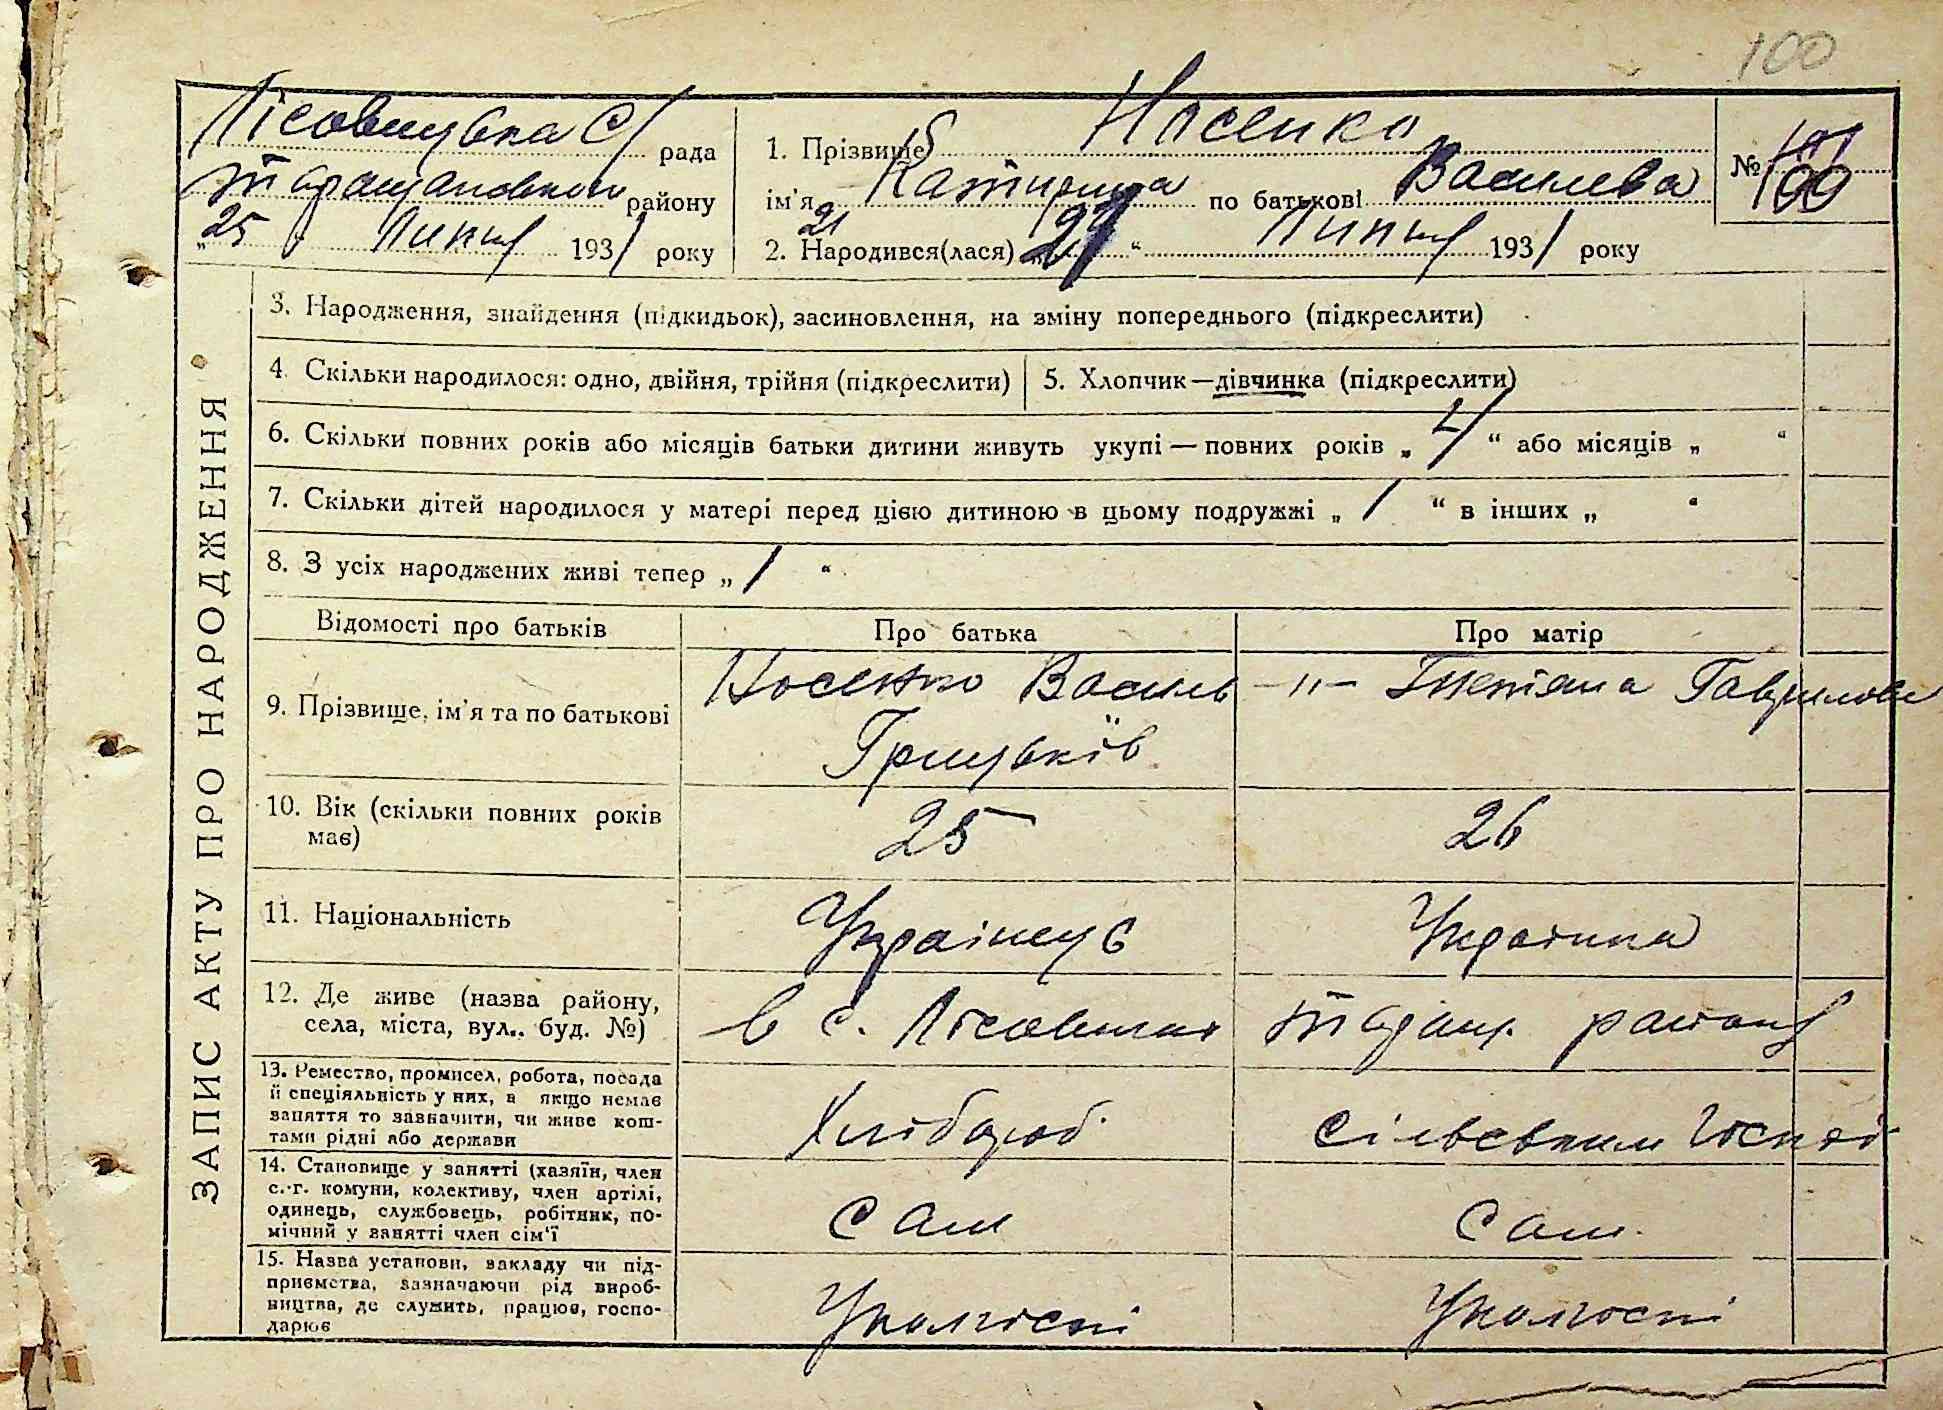 100
Лісовицька С/ рада
Таращановського району
„25 " Липня 1931 року
1. Прізвище Носенко
ім'я Катирина по батькові Василева
21
2. Народився(лася) „ " Липня 1931 року
№ 101
100
ЗАПИС АКТУ ПРО НАРОДЖЕННЯ
3. Народження, знайдення (підкидьок), засиновлення, на зміну попереднього (підкреслити)
4. Скільки народилося: одно, двійня, трійня (підкреслити)
5. Хлопчик—дівчинка (підкреслити)
6. Скільки повних років або місяців батьки дитини живуть укупі — повних років „ 4 " або місяців „ "
7. Скільки дітей народилося у матері перед цією дитиною в цьому подружжі „ 1 " в інших „ "
8. З усіх народжених живі тепер „ 1 "
Відомості про батьків
Про батька
Про матір
9. Прізвище, ім'я та по батькові
Носенко Василь
Грицьків
-"- Тетяна Гаврилова
10. Вік (скільки повних років
має)
25
26
11. Національність
Українець
Українка
12. Де живе (назва району,
села, міста, вул., буд. №)
в с. Лісовичах
Таращ. району
13. Ремество, промисел, робота, посада
й спеціяльність у них, а якщо немає
заняття то зазначити, чи живе кош-
тами рідні або держави
Хлібороб
Сільськім Госп
14. Становище у занятті (хазяїн, член
с.-г. комуни, колективу, член артілі,
одинець, службовець, робітник, по-
мічний у занятті член сім'ї
Сам
Сам
15. Назва установи, закладу чи під-
приємства, зазначаючи рід вироб-
ництва, де служить, працює, госпо-
дарює
Уколгоспі
Уколгоспі